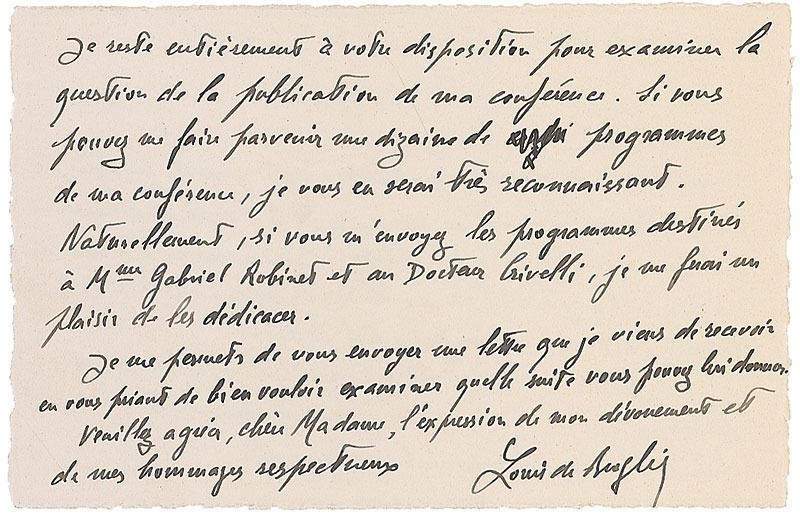 Je reste entièrement à votre disposition pour examiner la
question de la publication de ma conférence. Si vous
pouvez me faire parvenir une dizaine de programmes
de ma conférence, je vous en serai très reconnaissant.
Naturellement, si vous m'envoyez les programmes destinés
à Mme Gabriel Robinet et au Docteur Crivelli, je me ferai un
plaisir de les dédicacer.
Je me permets de vous envoyer une lettre que je viens de recevoir
en vous priant de bien vouloir examiner quelle suite vous pouvez lui donner.
Veuillez agréer, chère Madame, l'expression de mon dévouement et
de mes hommages respectueux
Louis de Broglie